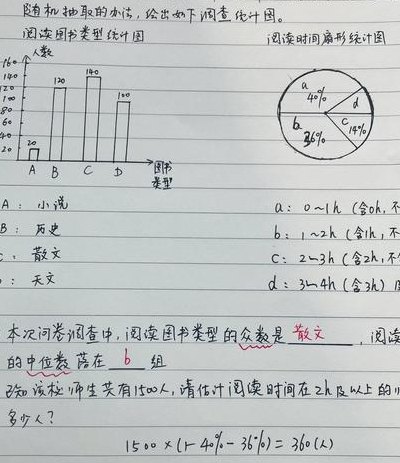 随机抽取的办法，绘出如下调查统计图。
阅读图书类型统计图
阅读时间扇形统计图
人数
160
140
120
100
80
60
40
20
20
120
140
100
A B C D
图书
类型
a
40%
b
36%
c
14%
d
A：小说
B：历史
C：散文
：天文
a：0~1h（含0h，不
b：1~2h（含1h，不
c：2~3h（含2h，不
d：3~4h（含3h）
本次问卷调查中，阅读图书类型的众数是 散文 ，阅读
的中位数落在 b 组
已知该校师生共有1500人，请估计阅读时间在2h及以上的
多少人？
1500×(1-40%-36%)=360(人)